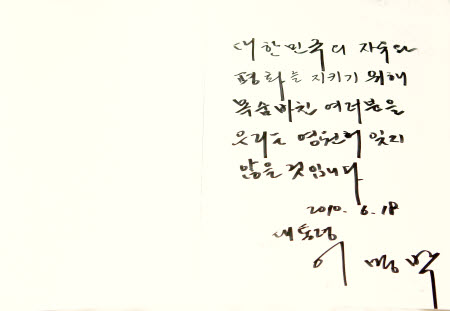 대한민국의 자유와
평화를 지키기 위해
목숨바친 여러분을
우리는 영원히 잊지
않을 것입니다
2010. 6. 18
대통령
이 명 박